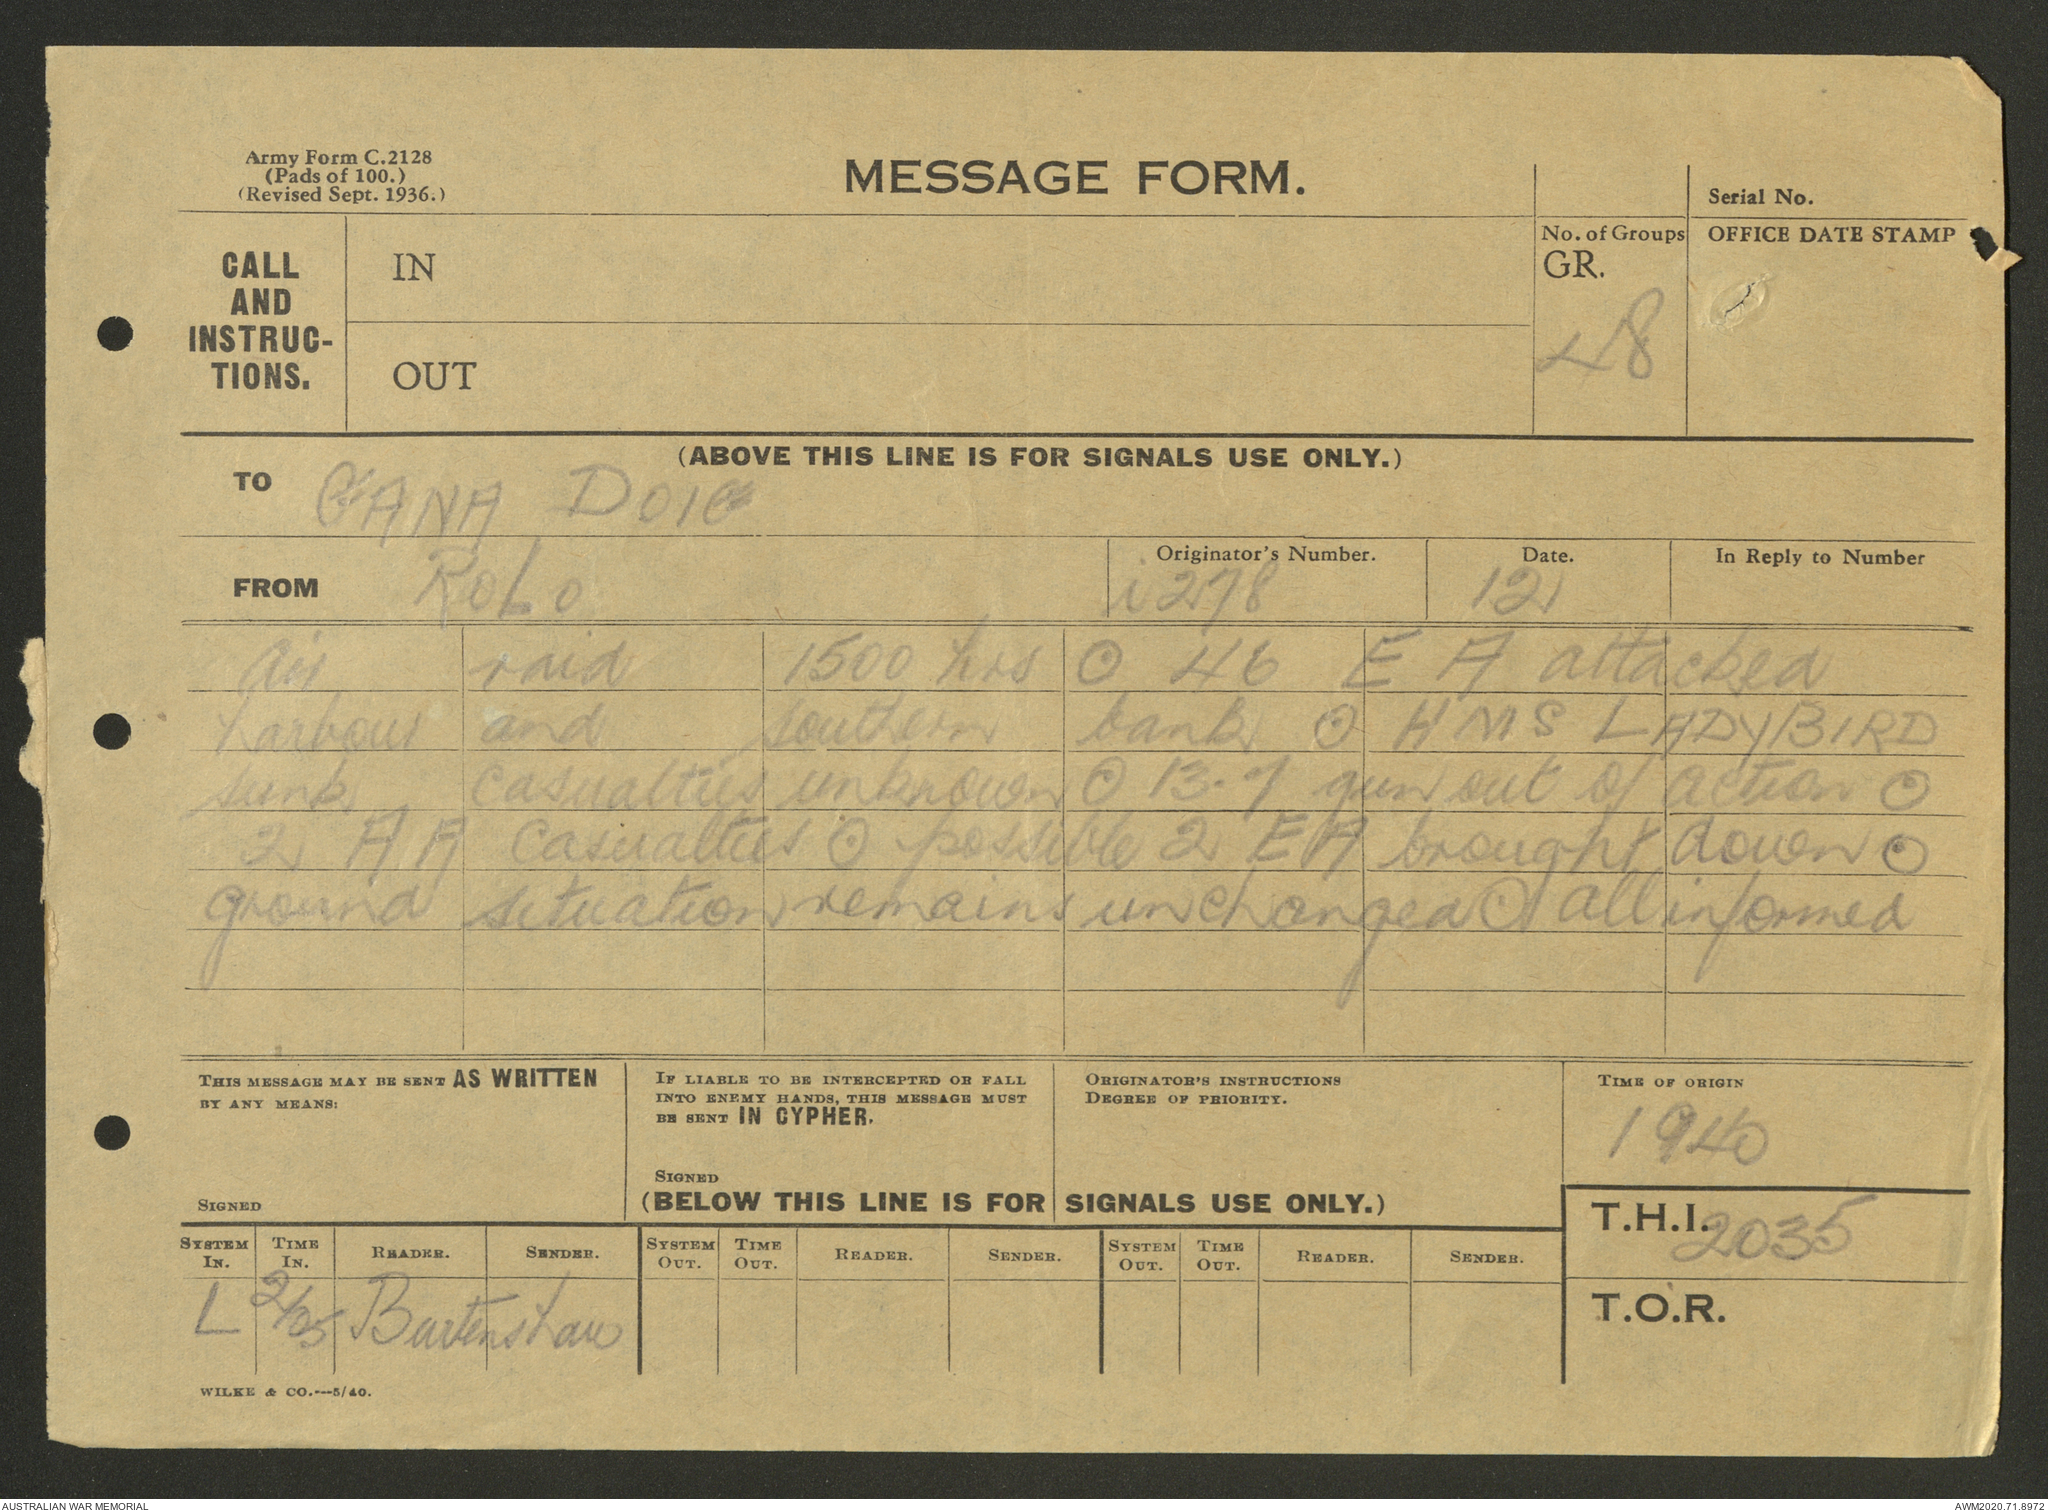 Army Form C.2128
(Pads of 100.)
(Revised Sept. 1936.)
MESSAGE FORM.
Serial No.
CALL
AND
INSTRUC-
TIONS.
IN
OUT
No. of Groups
GR.
48
OFFICE DATE STAMP
(ABOVE THIS LINE IS FOR SIGNALS USE ONLY.)
TO
FROM ROLO
Originator's Number.
i278
Date.
12
In Reply to Number
Air raid 1500 hrs ⊙ 46 E A attacked
harbour and southern bank ⊙ HMS LADYBIRD
sunk casualties unknown ⊙ 13.7 gun out of action ⊙
2 A A casualties ⊙ possible 2 E A brought down ⊙
ground situation remains unchanged ⊙ all informed
THIS MESSAGE MAY BE SENT AS WRITTEN
BY ANY MEANS:
SIGNED
IF LIABLE TO BE INTERCEPTED OR FALL
INTO ENEMY HANDS, THIS MESSAGE MUST
BE SENT IN CYPHER.
SIGNED
ORIGINATOR'S INSTRUCTIONS
DEGREE OF PRIORITY.
TIME OF ORIGIN
1940
(BELOW THIS LINE IS FOR SIGNALS USE ONLY.)
T.H.I. 2035
T.O.R.
SYSTEM IN. TIME IN. READER. SENDER. SYSTEM OUT. TIME OUT. READER. SENDER. SYSTEM OUT. TIME OUT. READER. SENDER.
L Burtenshaw
WILKE & CO.---5/40.
AUSTRALIAN WAR MEMORIAL
AWM2020.71.8972